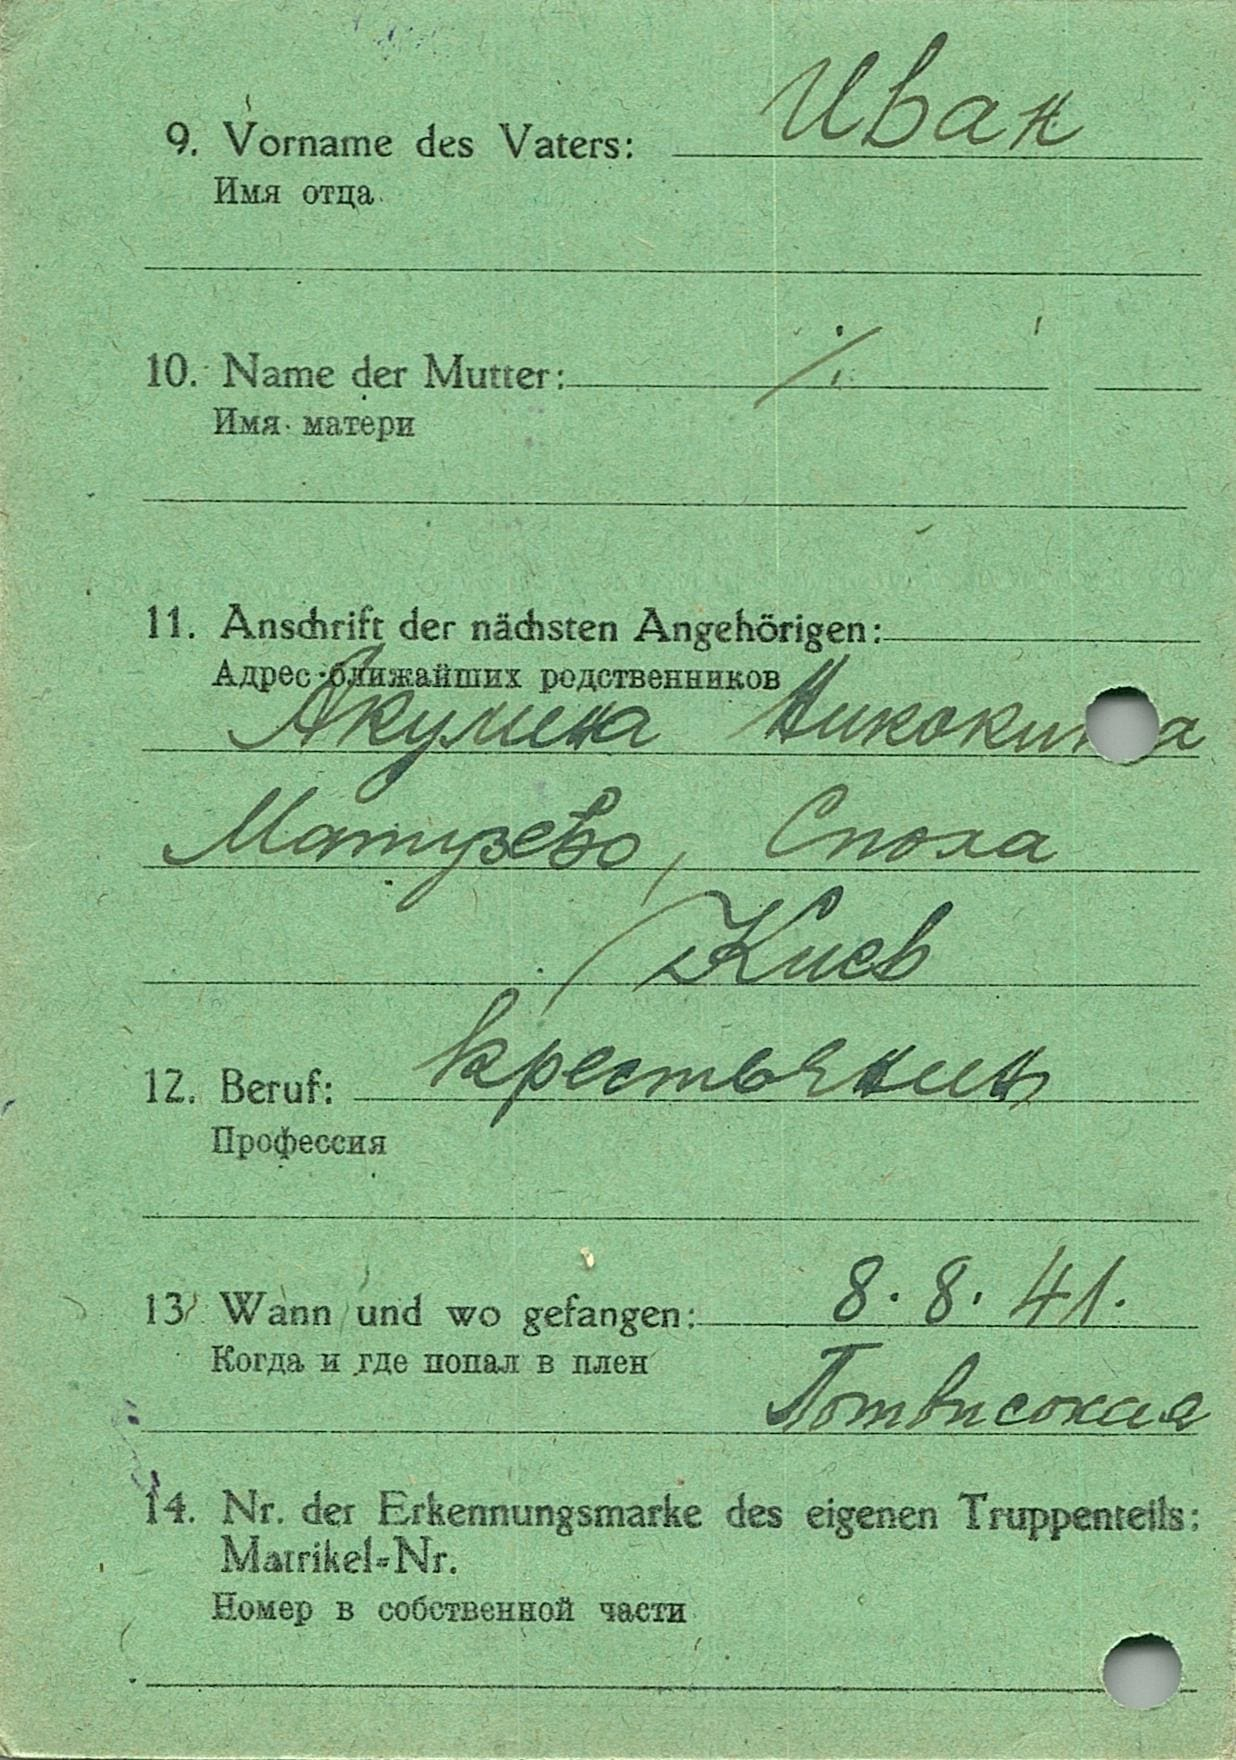 9. Vorname des Vaters: Иван
Имя отца
10. Name der Mutter: ·/.
Имя матери
11. Anschrift der nächsten Angehörigen:
Адрес ближайших родственников
Акулина
Матузево, Спола
Киев
12. Beruf: крестьянин
Профессия
13. Wann und wo gefangen: 8. 8. 41.
Когда и где попал в плен
Потвисокая
14. Nr. der Erkennungsmarke des eigenen Truppenteils:
Matrikel-Nr.
Номер в собственной части